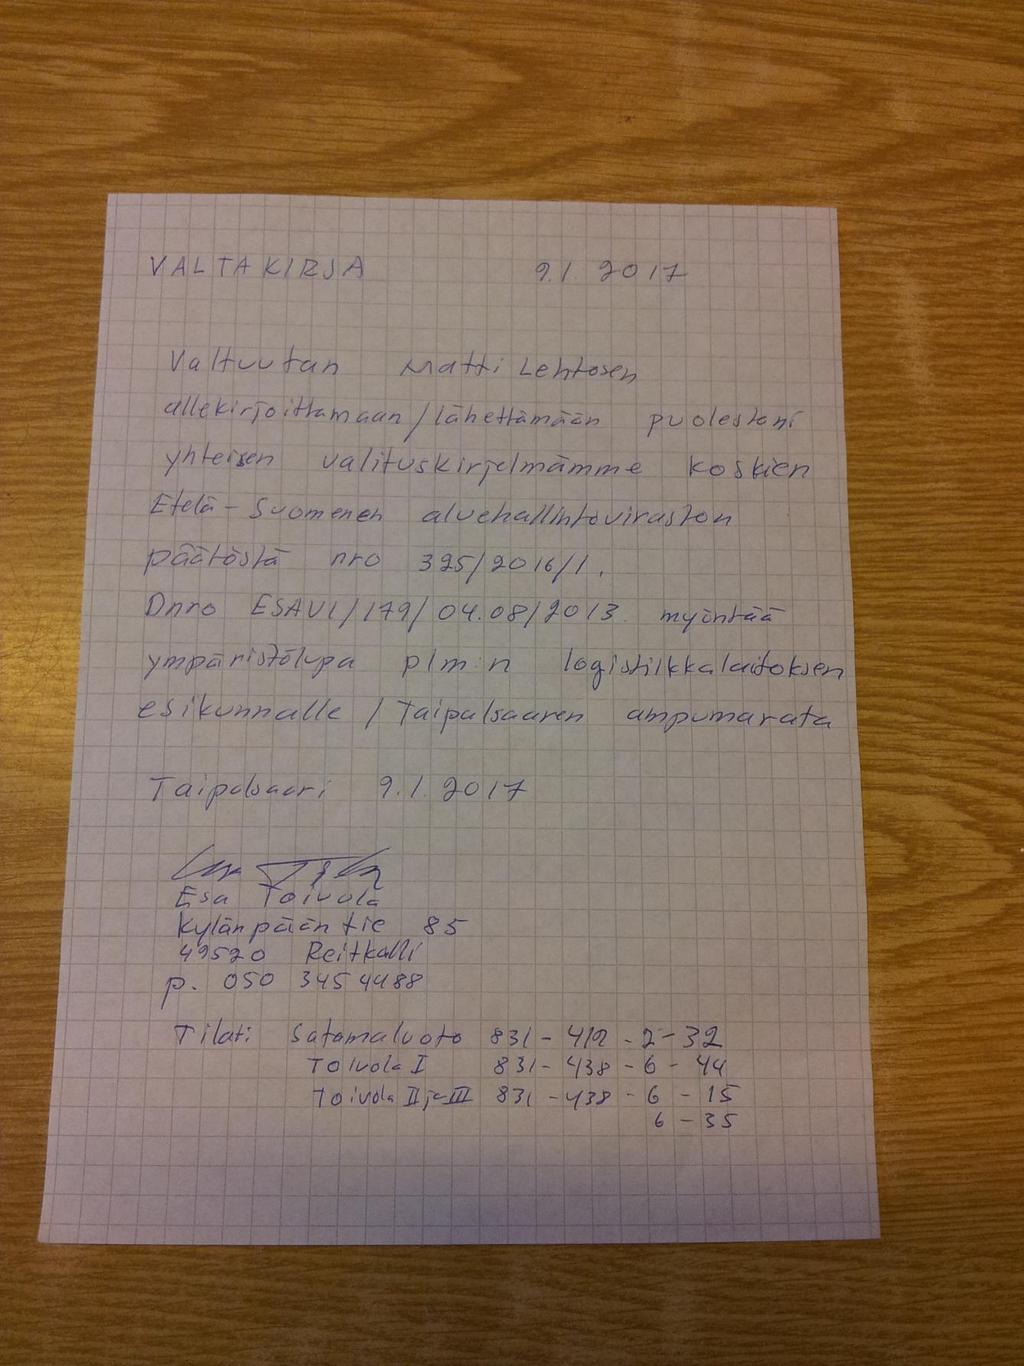 VALTAKIRJA 9.1.2017
Valtuutan Matti Lehtosen
allekirjoittamaan/lähettämään puolestani
yhteisen valituskirjelmämme koskien
Etelä-Suomenen aluehallintoviraston
päätöstä nro 325/2016/1.
Dnro ESAVI/179/04.08/2013 myöntää
ympäristölupa plm:n logistiikkalaitoksen
esikunnalle / Taipalsaaren ampumarata
Taipalsaari 9.1.2017
Esa Toivola
Kylänpääntie 85
49520 Reitkalli
p. 050 345 4488
Tilat: Satamaluoto 831-419-2-32
Toivola I 831-438-6-44
Toivola II ja III 831-438-6-15
6-35